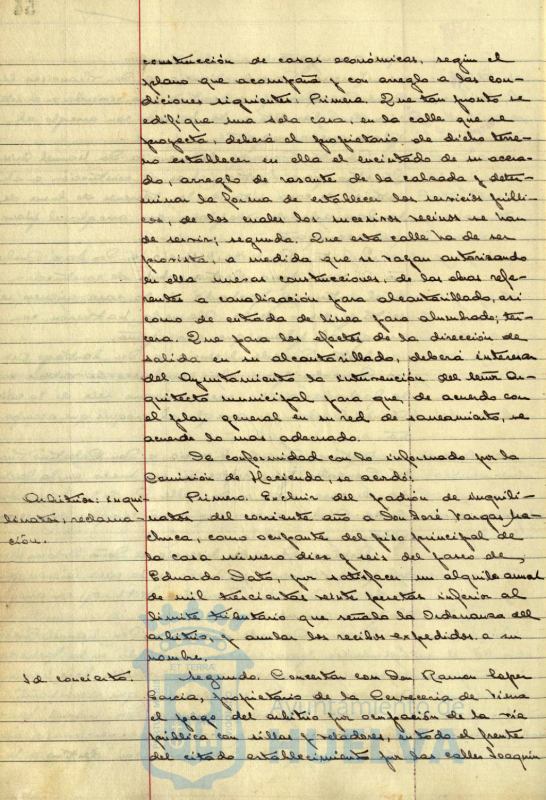 construcción de casas económicas, según el
plano que acompaña y con arreglo a las con-
diciones siguientes: Primera. Que tan pronto se
edifique una sola casa, en la calle que se
proyecta, deberá el propietario de dicho terre-
no establecer en ella el encintado de su acera-
do, arreglo de rasante de la calzada y deter-
minar la forma de establecer los servicios públi-
cos, de los cuales los sucesivos vecinos se han
de servir; segunda. Que esta calle ha de ser
provista, a medida que se vayan autorizando
en ella nuevas construcciones, de las obras refe-
rentes a canalización para alcantarillado, así
como de entrada de línea para alumbrado; ter-
cera. Que para los efectos de la dirección de
salida en su alcantarillado, deberá interesar
del Ayuntamiento la intervención del Señor Ar-
quitecto municipal para que, de acuerdo con
el plan general en su red de saneamiento, se
acuerde lo mas adecuado.
De conformidad con lo informado por la
Comisión de Hacienda, se acordó:
Arbitrios: inqui-
linatos; reclama-
ción.
Primero. Excluir del padrón de inquili-
natos del corriente año a Don José Vargas Ma-
chuca, como ocupante del piso principal de
la casa número diez y seis del paseo de
Eduardo Dato, por satisfacer un alquiler anual
de mil trescientas veinte pesetas inferior al
límite tributario que señala la Ordenanza del
arbitrio, y anular los recibos expedidos a su
nombre.
Id. concierto.
Segundo. Concertar con Don Ramon Lopez
García, propietario de la Cervecería de Viena
el pago del arbitrio por ocupación de la vía
pública con sillas y veladores, en todo el frente
del citado establecimiento por las calles Joaquín
Ayuntamiento de
HUELVA